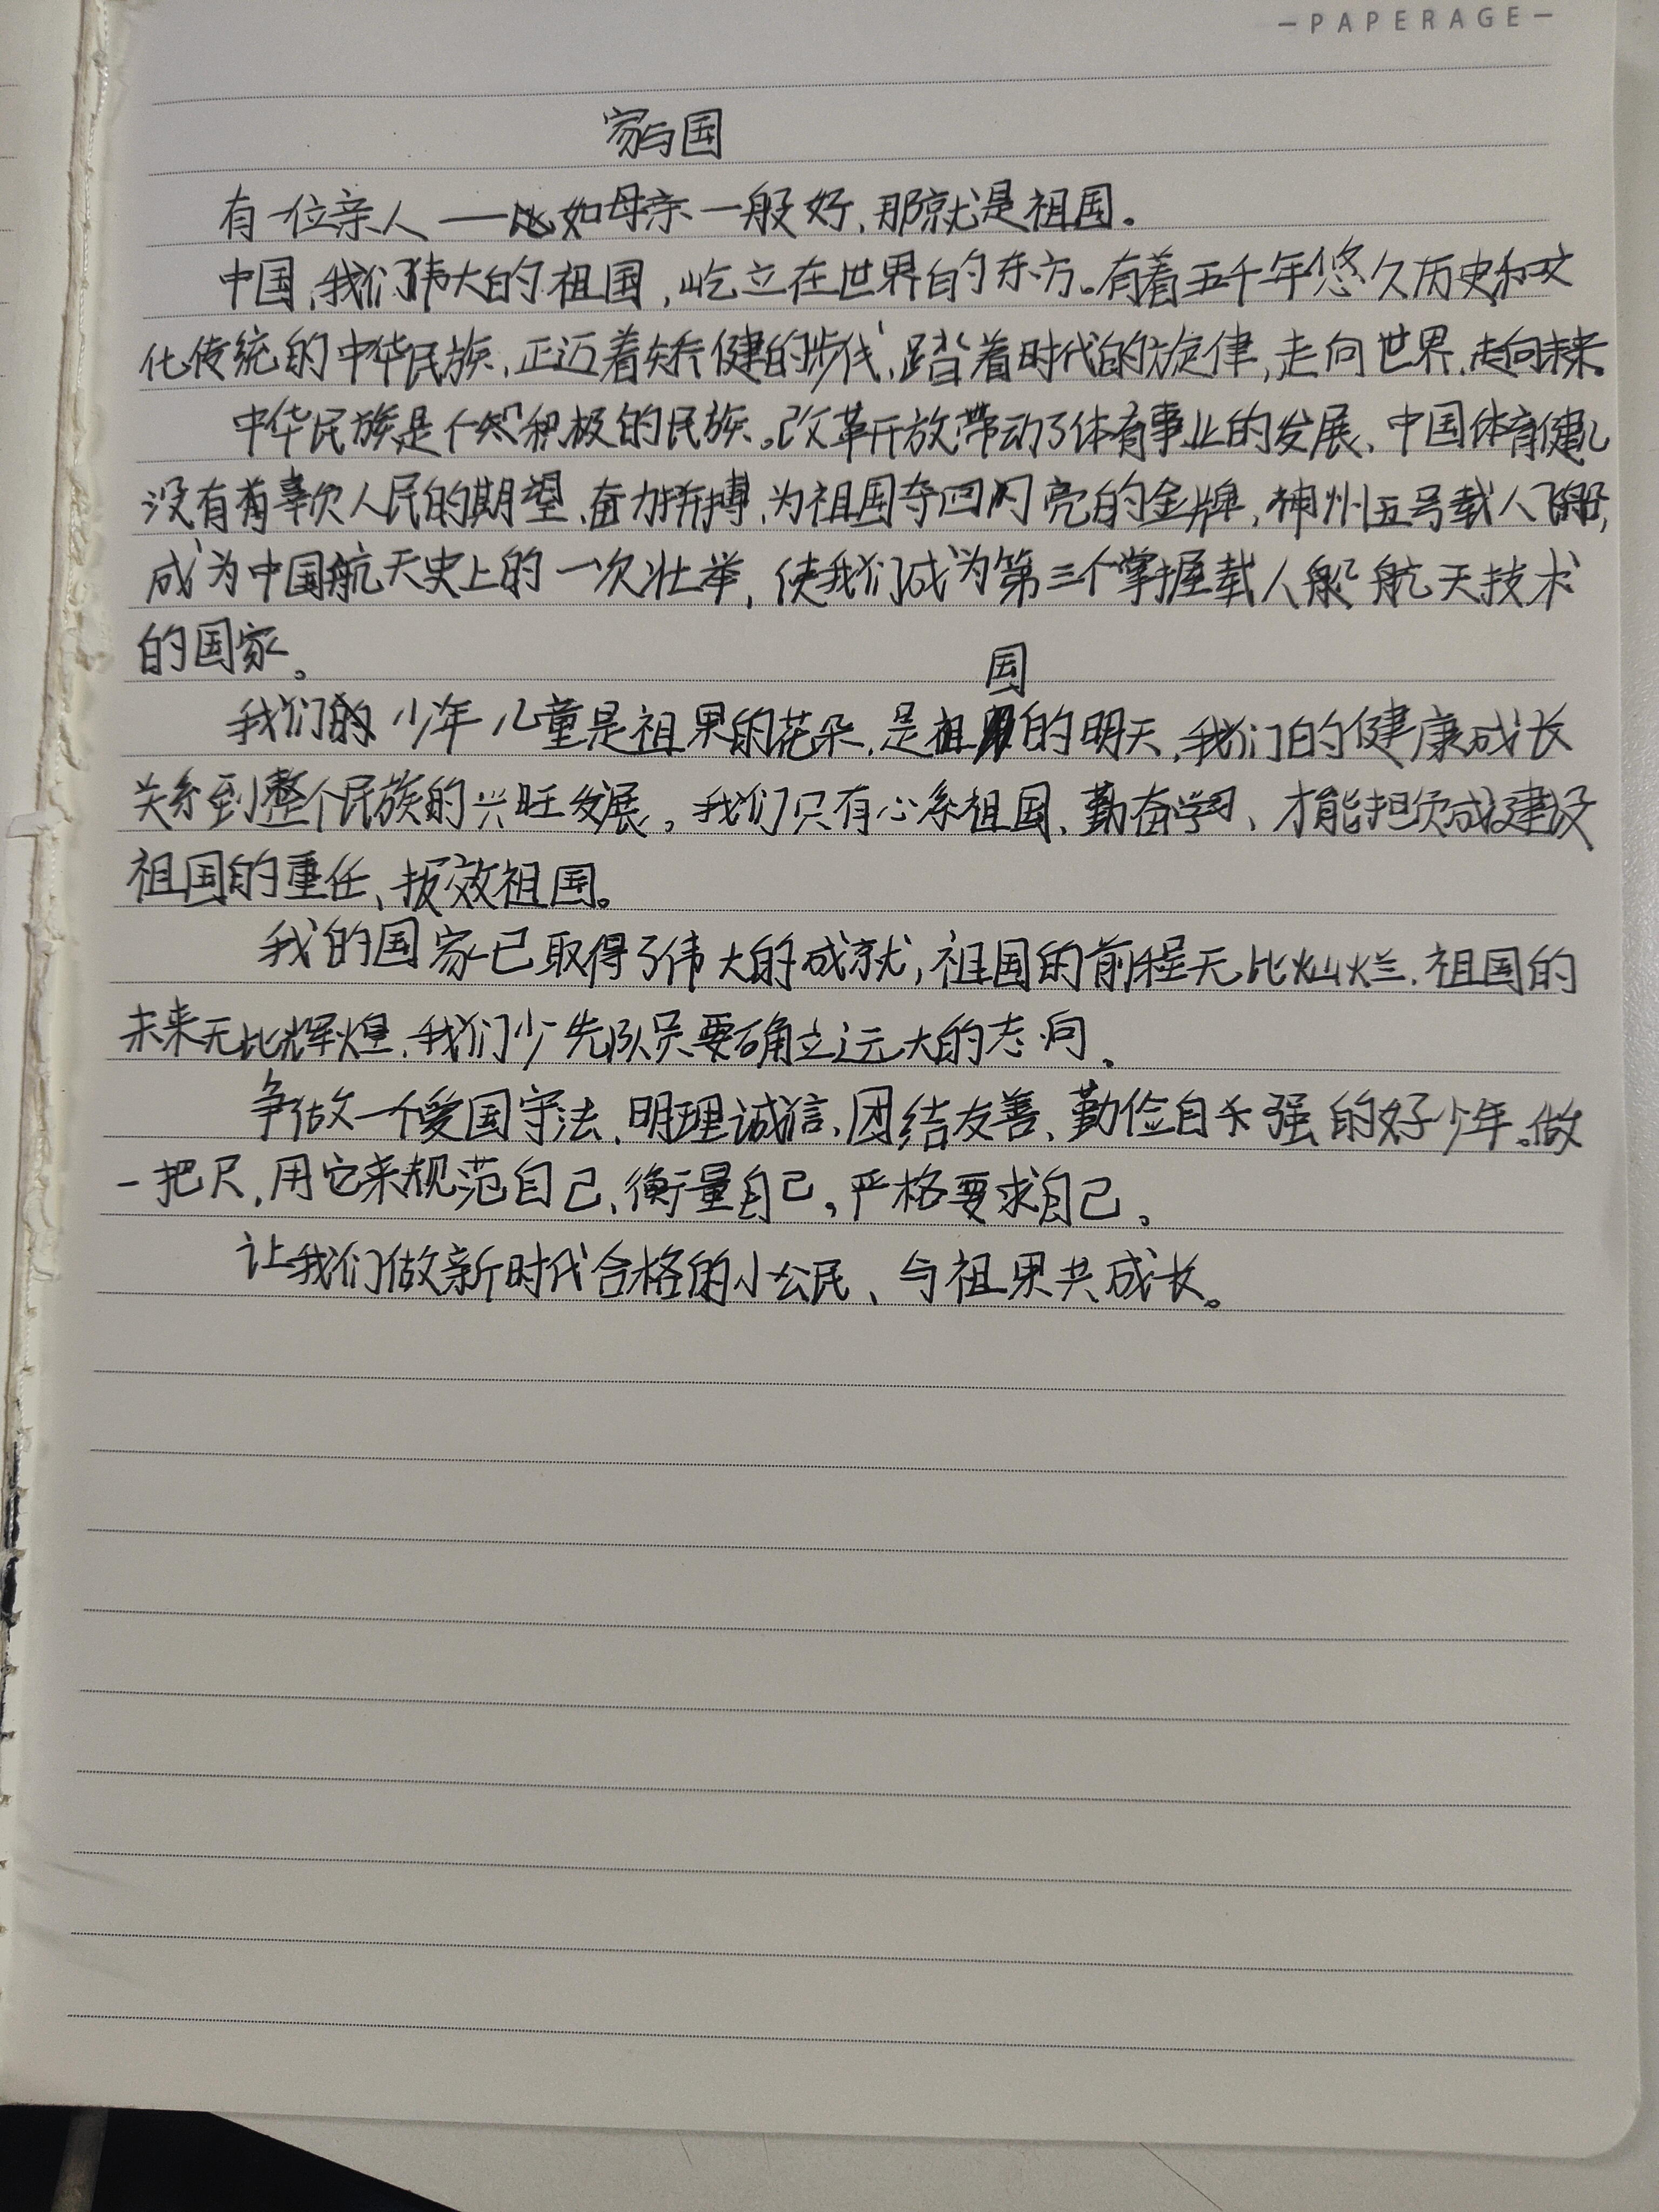 —PAPERAGE—
家与国
有一位亲人——如母亲一般好,那就是祖国。
中国,我们伟大的祖国,屹立在世界的东方。有着五千年悠久历史和文
化传统的中华民族,正迈着矫健的步伐,踏着时代的旋律,走向世界,走向未来。
中华民族是个积极的民族。改革开放带动了体育事业的发展、中国体育健儿
没有辜欠人民的期望、奋力拼搏,为祖国夺回闪亮的金牌,神州五号载人飞船,
成为中国航天史上的一次壮举,使我们成为第三个掌握载人航天技术
的国家。
国
我们的少年儿童是祖果的花朵,是祖的明天,我们的健康成长
关系到整个民族的兴旺发展。我们只有心系祖国、勤奋学习、才能担负建设
祖国的重任、报效祖国。
我的国家已取得了伟大的成就,祖国的前程无比灿烂.祖国的
未来无比辉煌.我们少先队员要确立远大的志向.
争做一个爱国守法、明理诚信、团结友善、勤俭自强的好少年。做
一把尺,用它来规范自己、衡量自己,严格要求自己。
让我们做新时代合格的小公民、与祖果共成长。